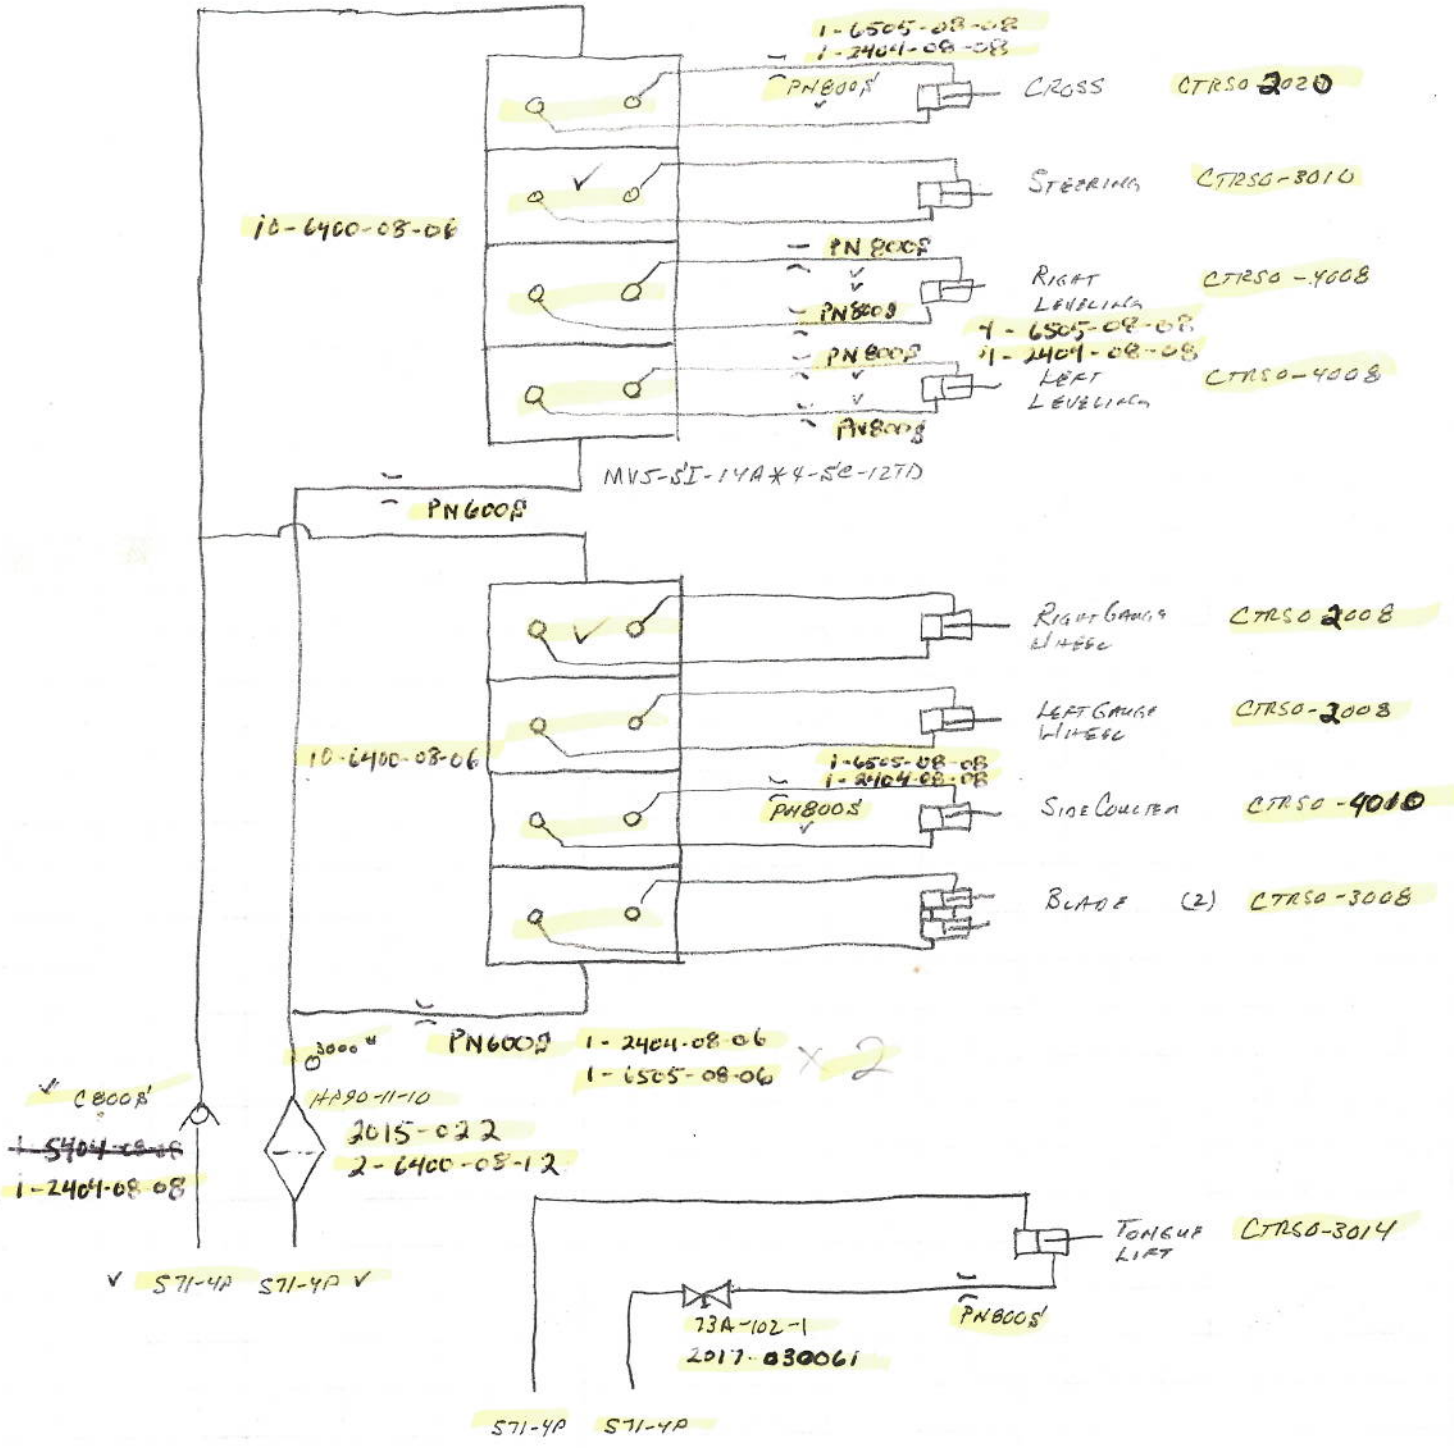 1-6505-08-08
1-2404-08-08
PN800S
CROSS CTRSO 2020
STEERING CTRSO-3010
10-6400-08-06
PN800S
RIGHT LEVELING CTRSO-4008
PN800S
4-6505-08-08
4-2404-08-08
PN800S
LEFT LEVELING CTRSO-4008
PN800S
MV5-SI-14A*4-SC-12TD
PN600S
RIGHT GAUGE WHEEL CTRSO 2008
LEFT GAUGE WHEEL CTRSO-2008
10-6400-08-06
1-6505-08-08
1-2404-08-08
PN800S
SIDE COULTER CTRSO-4010
BLADE (2) CTRSO-3008
3000#
PN600S 1-2404-08-06
1-6505-08-06 X 2
C800S
HP90-11-10
1-5404-08-08
2015-022
2-6400-08-12
1-2404-08-08
S71-4P S71-4P
TONGUE LIFT CTRSO-3014
PN800S
73A-102-1
2017-030061
S71-4P S71-4P